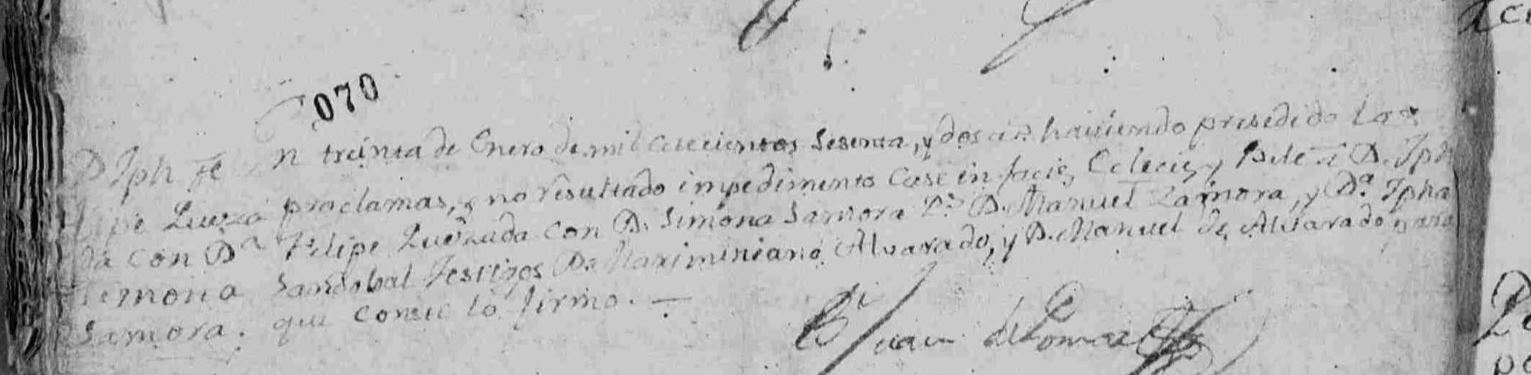 070
D Jph Fe
lipe Queza
da con Dª
Simona
Samora.
En treinta de Enero de mil Setecientos Sesenta, y dos aˢ haviendo presedido las
proclamas, y no resultado impedimento Case in facie Eclecie, y Vele à D. Jph
Felipe Quezada con D. Simona Samora hª D. Manuel Zamora, y Dª Jpha
Sandobal Testigos Dⁿ Maximiniano Alvarado, y D. Manuel de Alvarado para
que conste lo firmo. —
Juan de